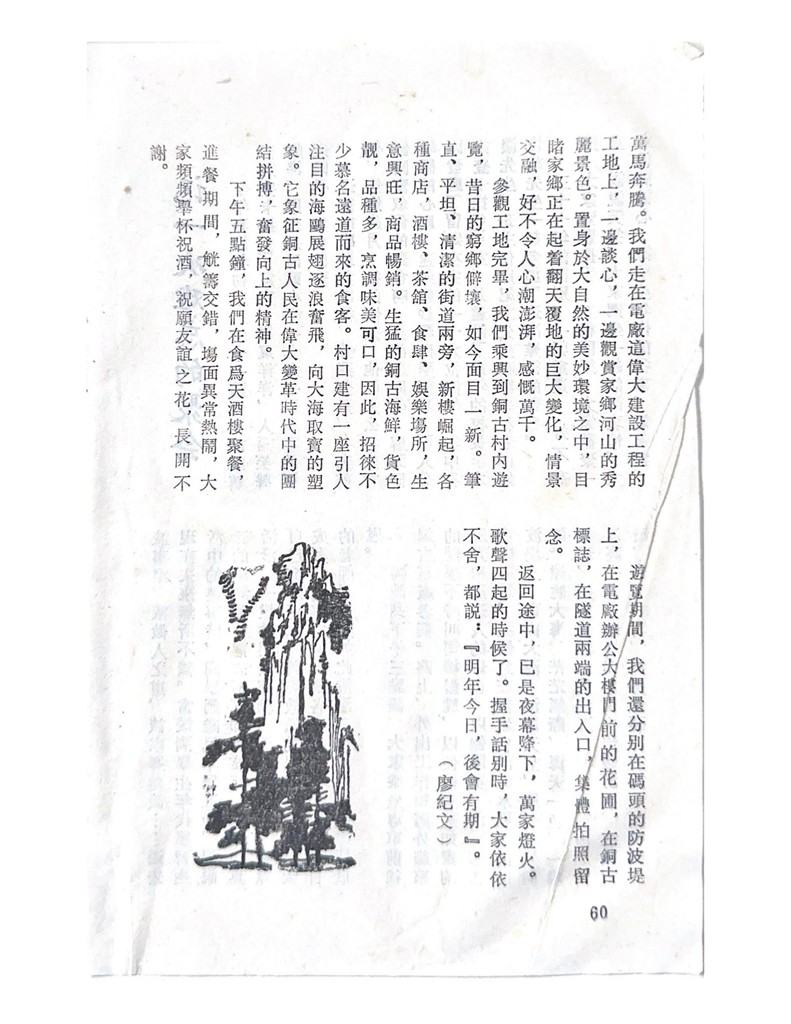 萬馬奔騰。我們走在電廠道偉大建設工程的
工地上，一邊談心，一邊觀賞家鄉河山的秀
麗景色。置身於大自然的美妙環境之中，目
睹家鄉正在起着翻天覆地的巨大變化，情景
交融，好不令人心潮澎湃，感慨萬千。
參觀工地完畢，我們乘興到銅古村內遊
覽，昔日的窮鄉僻壤，如今面目一新。筆
直、平坦、清潔的街道兩旁，新樓崛起，各
種商店、酒樓、茶舘、食肆、娛樂塲所，生
意興旺，商品暢銷。生猛的銅古海鮮，貨色
靚，品種多，烹調味美可口，因此，招徠不
少慕名遠道而來的食客。村口建有一座引人
注目的海鷗展翅逐浪奮飛，向大海取寶的塑
象。它象征銅古人民在偉大變革時代中的團
結拼搏，奮發向上的精神。
下午五點鐘，我們在食爲天酒樓聚餐，
進餐期間，觥籌交錯，塲面異常熱鬧，大
家頻頻舉杯祝酒，祝願友誼之花，長開不
謝。
遊覽期間，我們還分別在碼頭的防波堤
上，在電廠辦公大樓門前的花圃，在銅古
標誌，在隧道兩端的出入口，集體拍照留
念。
返回途中，已是夜幕降下，萬家燈火。
歌聲四起的時候了。握手話别時，大家依依
不舍，都説：『明年今日，後會有期』。
（廖紀文）
60